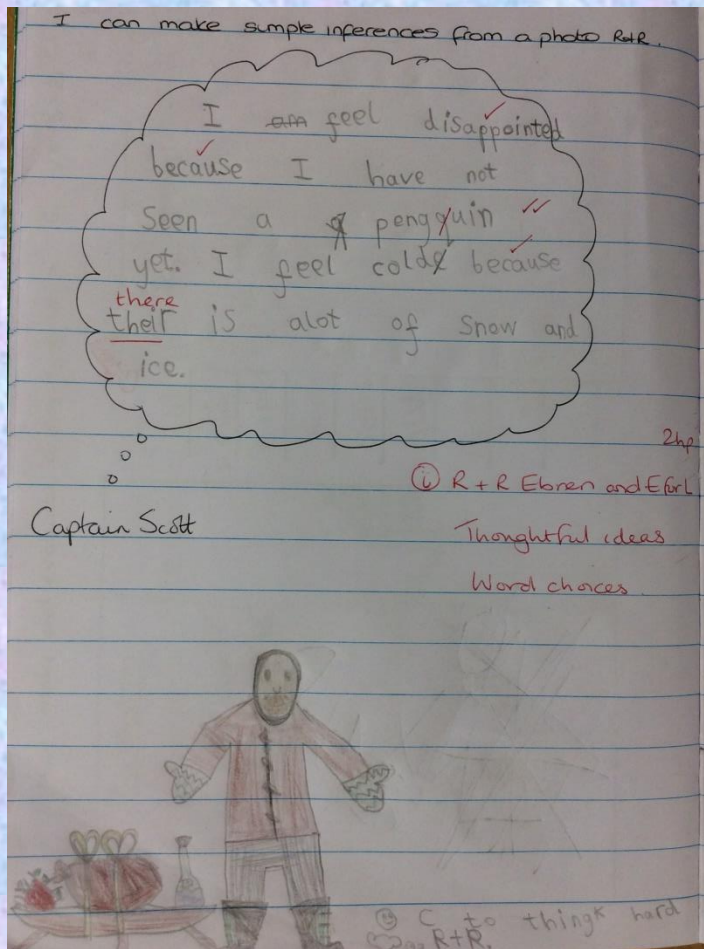 I can make simple inferences from a photo R+R.
I am feel disappointed
because I have not
Seen a pengquin
yet. I feel cold because
there
their is alot of Snow and
ice.
2hp
i R + R Ebren and Efurl
Thoughtful ideas
Word choices
Captain Scott
C to thingk hard
R+R.